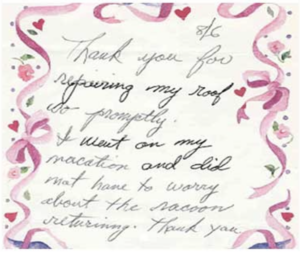 8/6
Thank you for
repairing my roof
so promptly.
I went on my
vacation and did
not have to worry
about the racoon
returning. Thank you